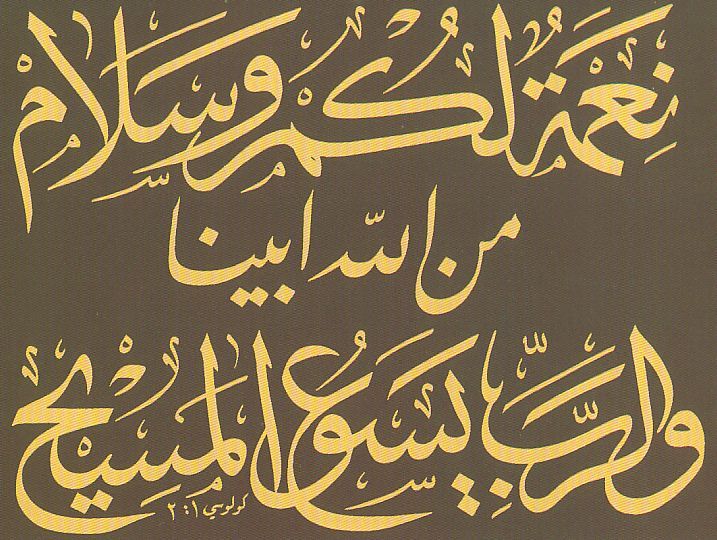 نِعْمَةٌ لَكُمْ وَسَلَامٌ
من الله ابينا
والرَّبِّ يَسُوعَ الْمَسِيحِ
كولوسي ١ : ٢